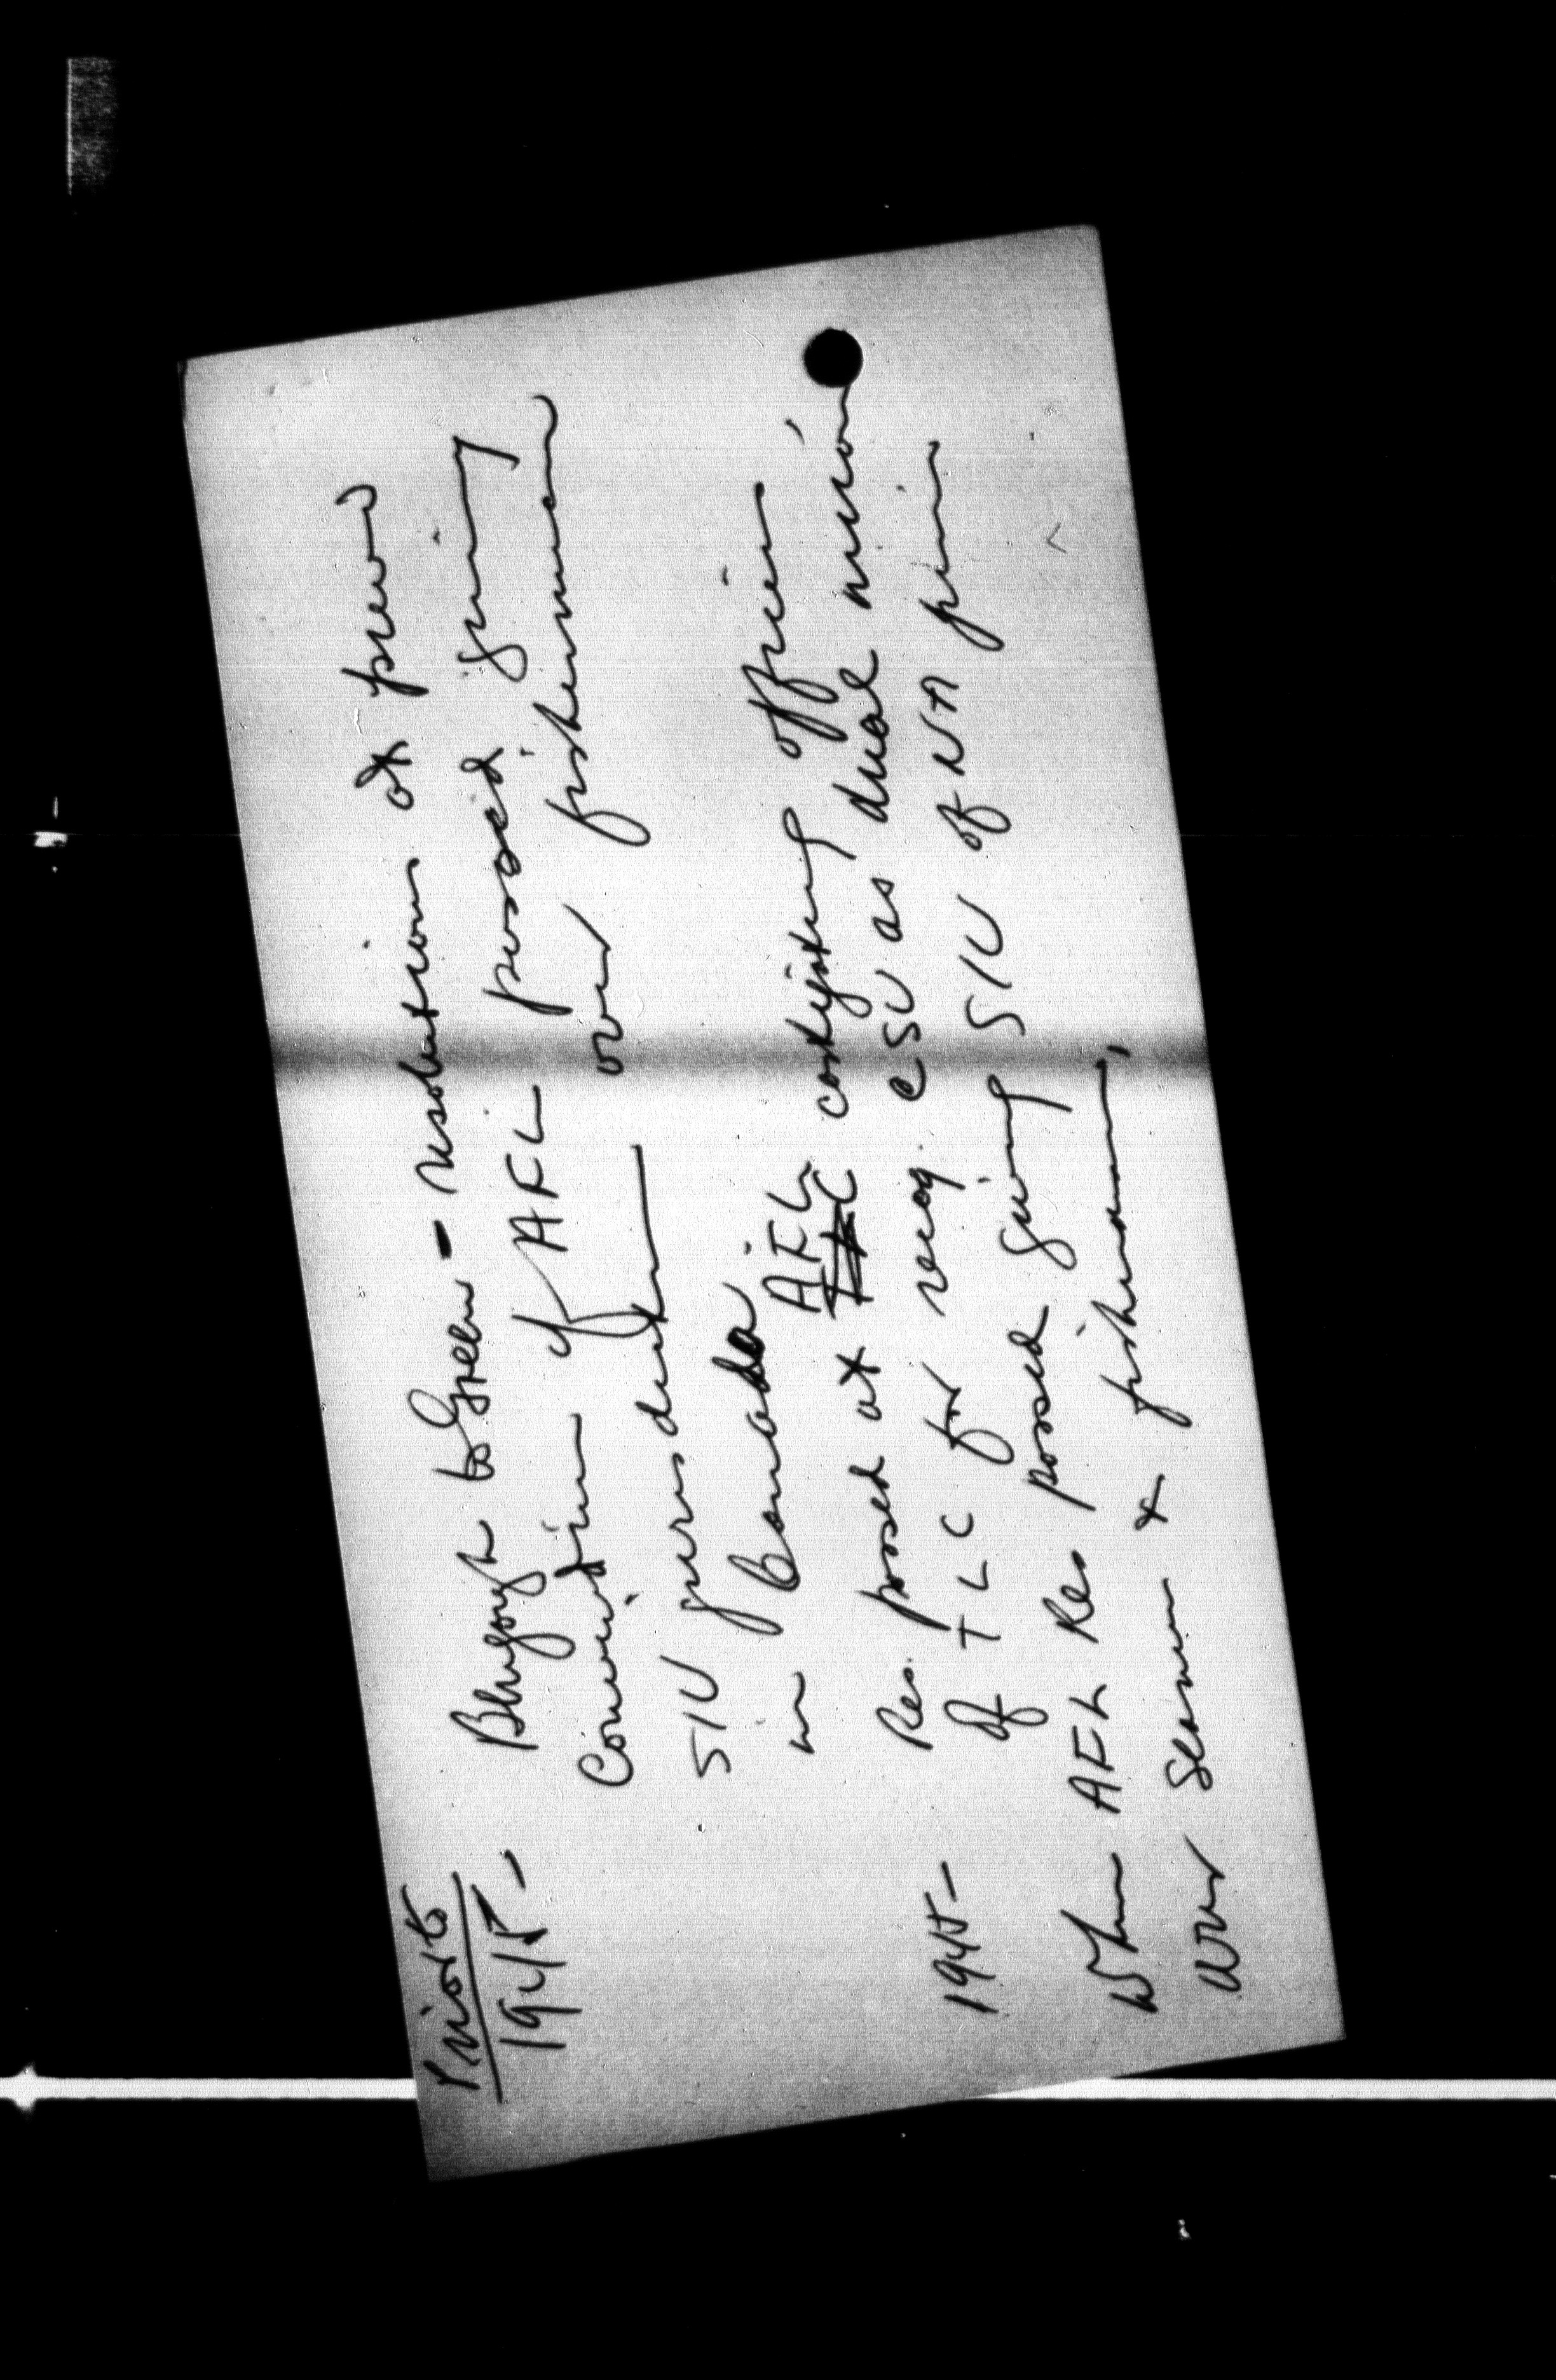 Prior to
1945 - to Green - resolution at prev
Convention of AFL passed giving
SIU jurisdiction over fishermen
in Canada.
Res. passed at AFL castigating officers
1945 - of TLC for recog. CSU as dual union
When AFL Res passed giving SIU of NA juris
over seamen & fishermen,